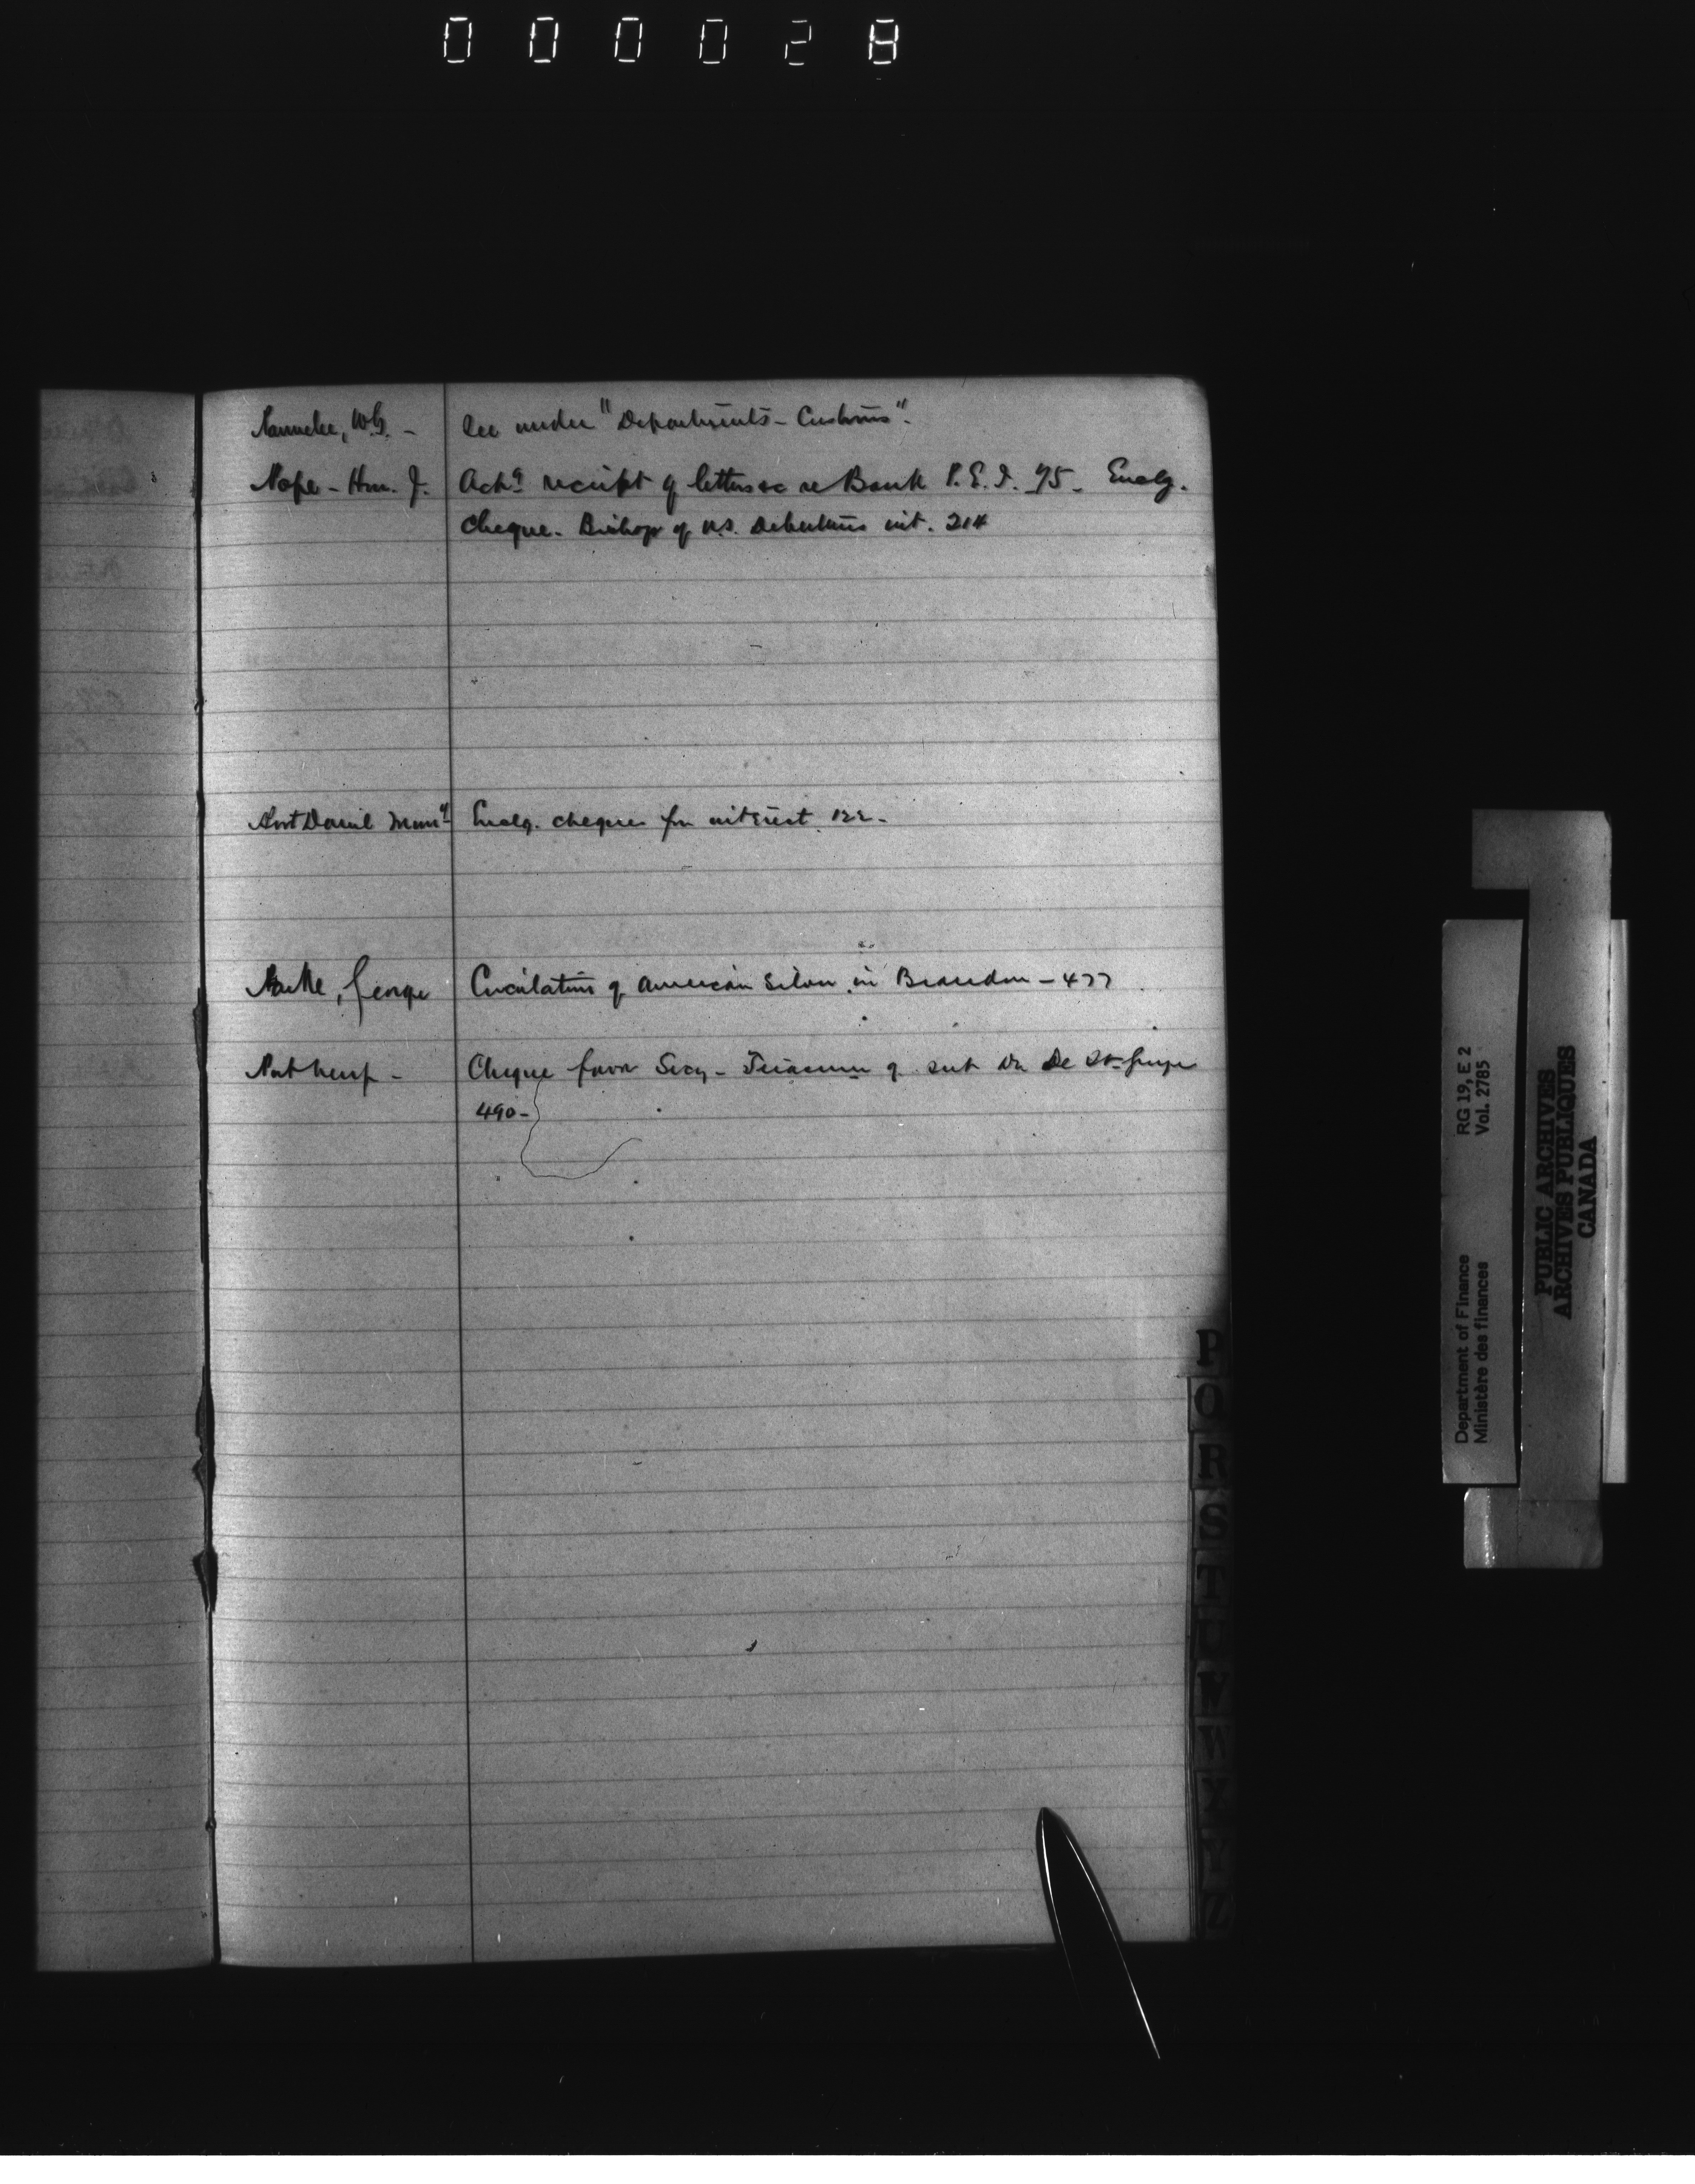 000028
W.G. - See under "Departments - Customs".
Nope - Hon. J. Ackg receipt of letters &c re Bank P.E.I. 95. Enclg.
cheque. Bishop of N.S. Debentures int. 214
Enclg. cheque for interest. 122.
George Circulation of American Silver in Brandon - 477
Cheque favor Secy - Treasurer of De St. George
490 -
P
Q
R
S
T
U
V
W
X
Y
Z
Department of Finance RG 19, E 2
Ministère des finances Vol. 2785
PUBLIC ARCHIVES
ARCHIVES PUBLIQUES
CANADA